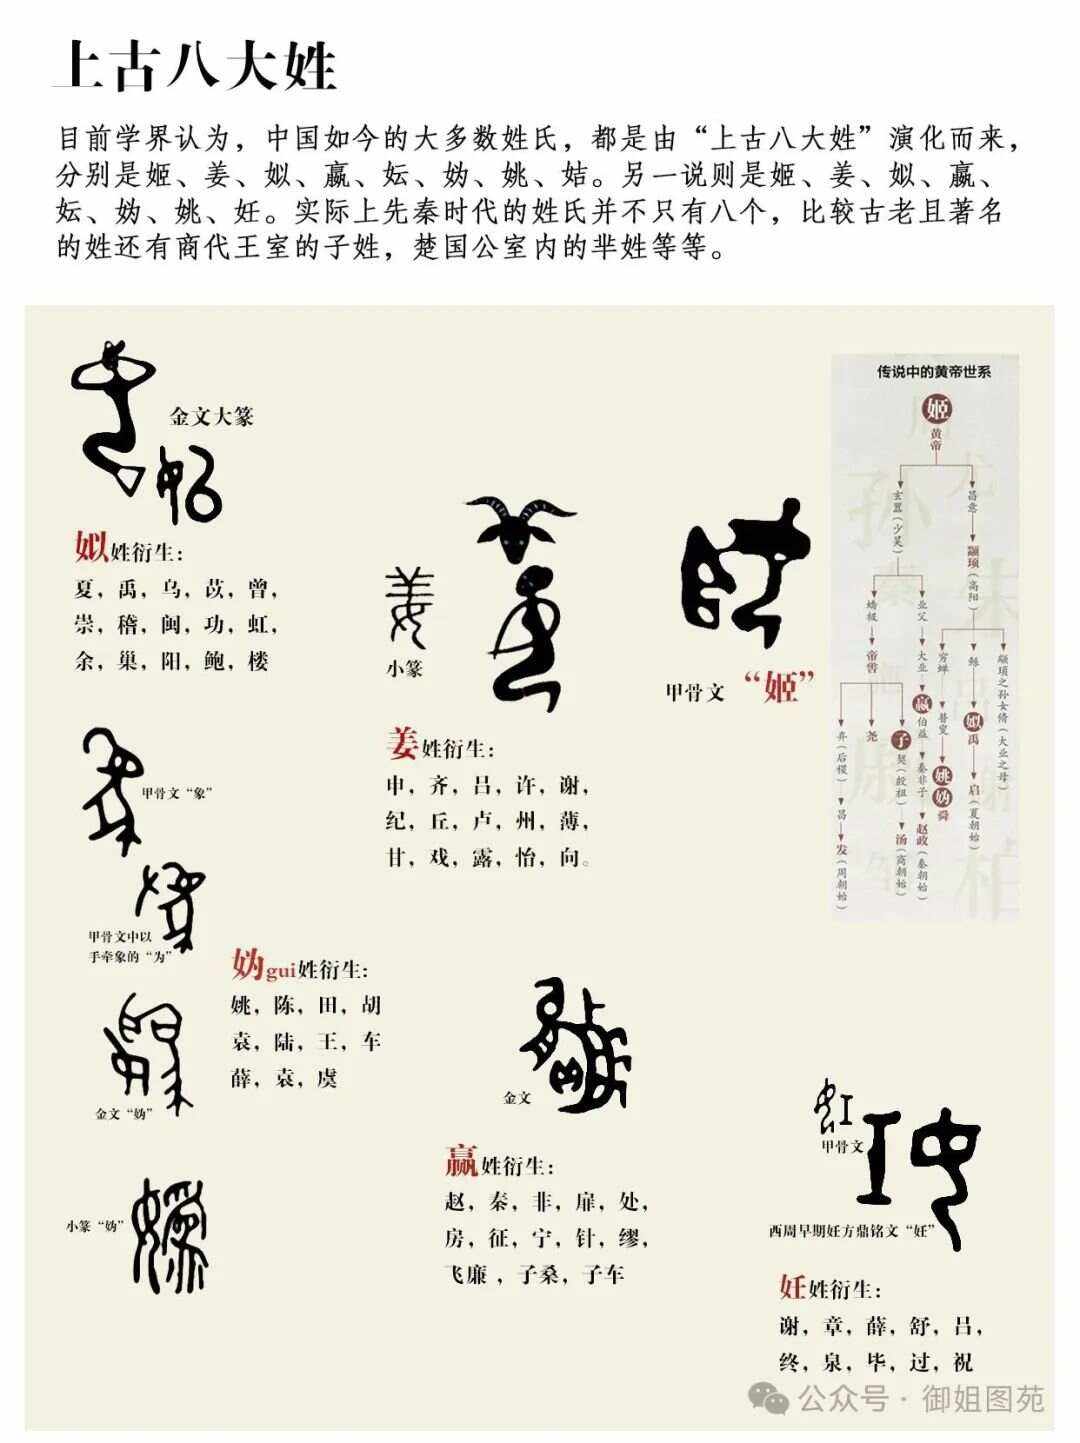 上古八大姓
目前学界认为，中国如今的大多数姓氏，都是由“上古八大姓”演化而来，
分别是姬、姜、姒、嬴、妘、妫、姚、姞。另一说则是姬、姜、姒、嬴、
妘、妫、姚、妊。实际上先秦时代的姓氏并不只有八个，比较古老且著名
的姓还有商代王室的子姓，楚国公室内的芈姓等等。
金文大篆
姒姓衍生：
夏，禹，乌，苡，曾，
崇，稽，闽，功，虹，
余，巢，阳，鲍，楼
姜
小篆
姜姓衍生：
申，齐，吕，许，谢，
纪，丘，卢，州，薄，
甘，戏，露，怡，向。
甲骨文 “姬”
传说中的黄帝世系
姬
黄帝
玄嚣（少昊）
昌意
颛顼（高阳）
蟜极
业父
帝喾
大业
穷蝉
鲧
颛顼之孙女脩（大业之母）
嬴
伯益
姒
禹
弃（后稷）
尧
子
契（殷祖）
秦非子
瞽叟
姚
妫
舜
启（夏朝始）
昌
发（周朝始）
汤（商朝始）
赵政（秦朝始）
甲骨文“象”
甲骨文中以
手牵象的“为”
妫gui姓衍生：
姚，陈，田，胡
袁，陆，王，车
薛，袁，虞
金文“妫”
小篆“妫”
金文
嬴姓衍生：
赵，秦，非，扉，处，
房，征，宁，针，缪，
飞廉，子桑，子车
甲骨文
西周早期妊方鼎铭文“妊”
妊姓衍生：
谢，章，薛，舒，吕，
终，泉，毕，过，祝
公众号·御姐图苑